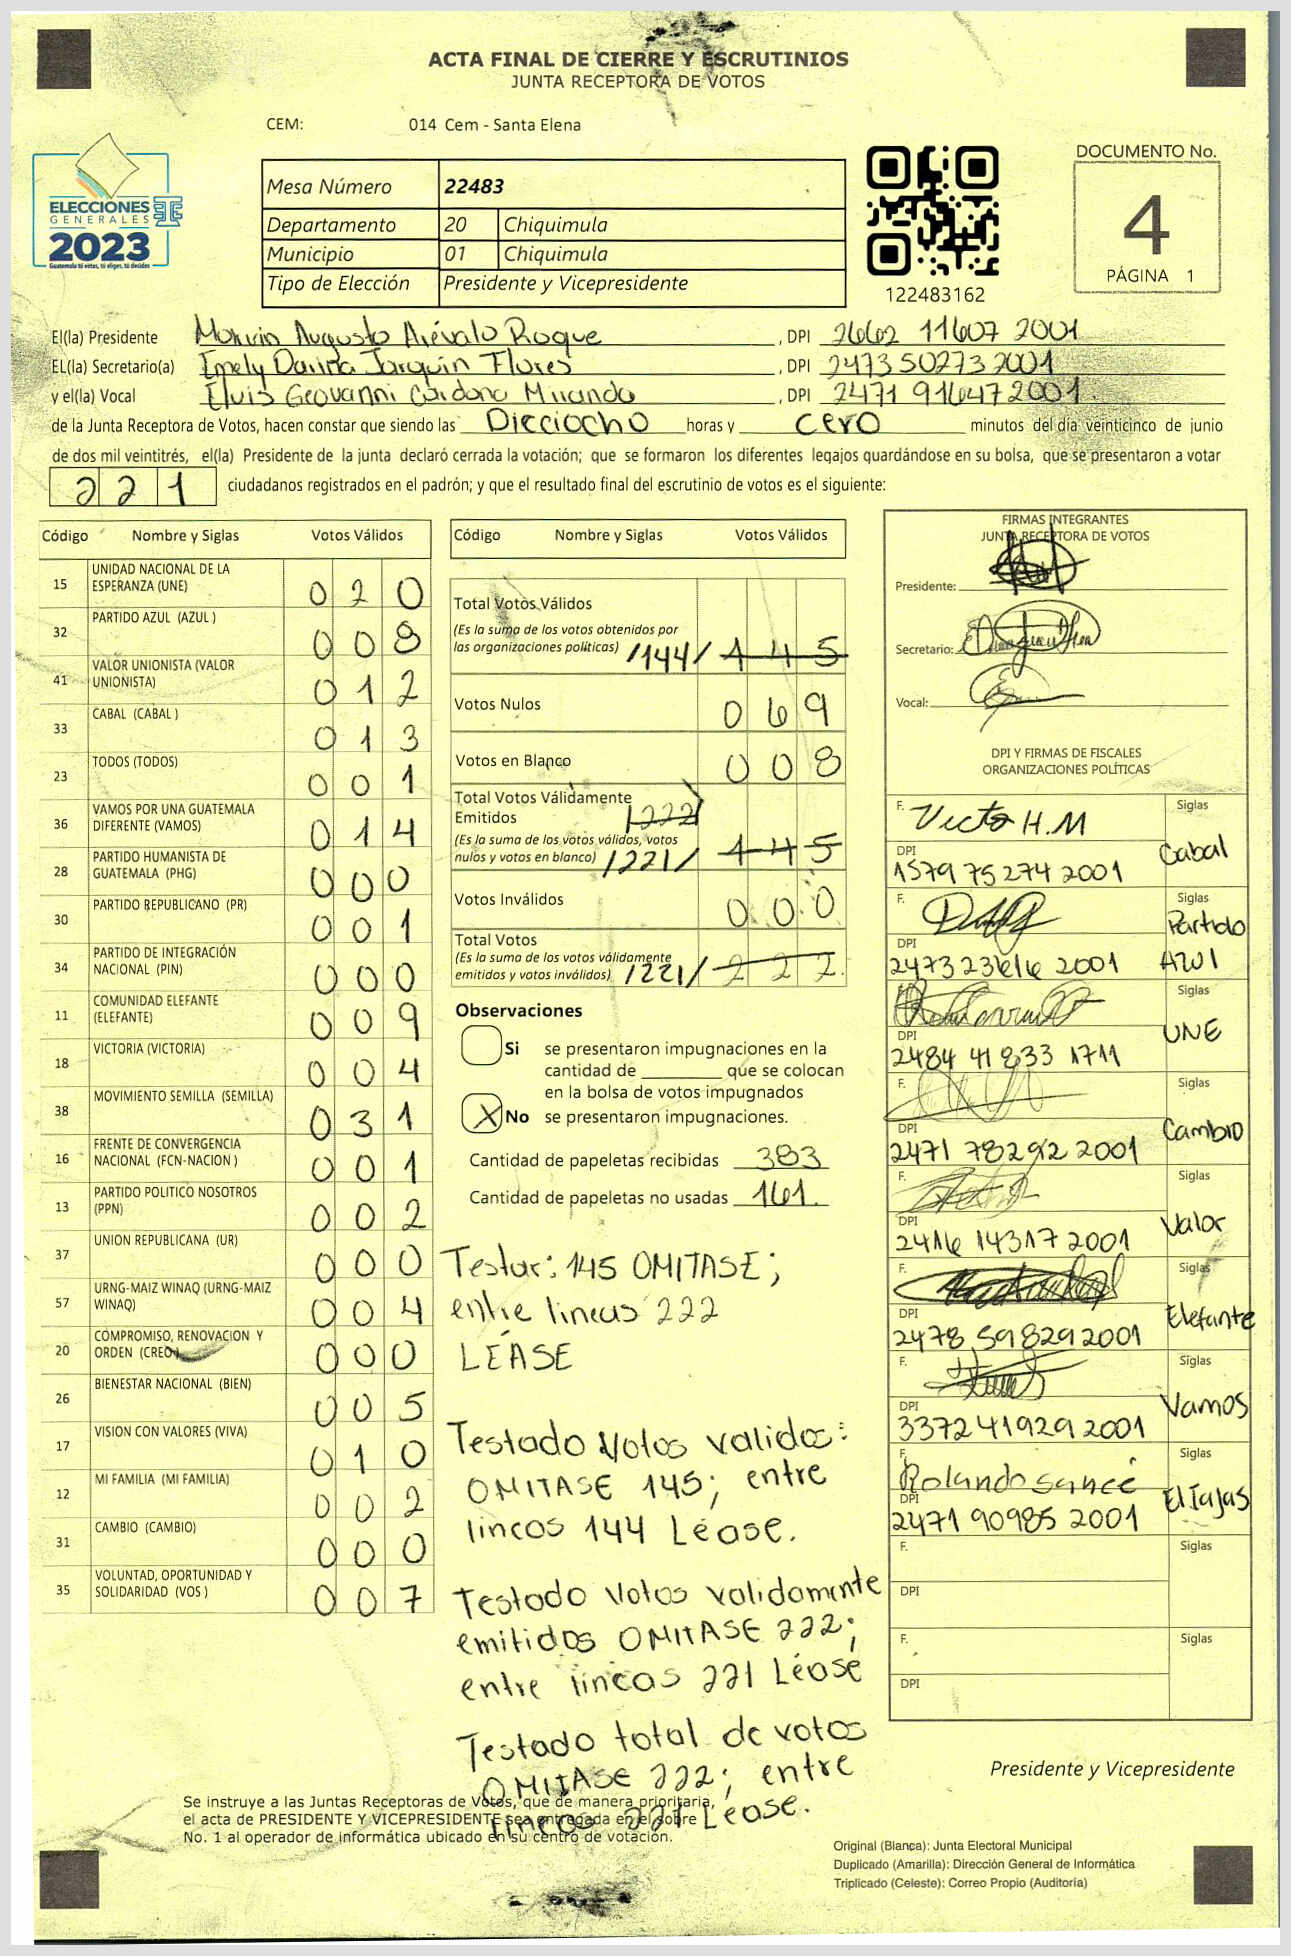 ACTA FINAL DE CIERRE Y ESCRUTINIOS
JUNTA RECEPTORA DE VOTOS
CEM: 014 Cem - Santa Elena
ELECCIONES
GENERALES
2023
Guatemala tú votas, tú eliges, tú decides
Mesa Número 22483
Departamento 20 Chiquimula
Municipio 01 Chiquimula
Tipo de Elección Presidente y Vicepresidente
122483162
DOCUMENTO No.
4
PÁGINA 1
El(la) Presidente Marvin Augusto Arévalo Roque , DPI 2662 11607 2001
EL(la) Secretario(a) Emely Darina Jarquín Flores , DPI 2473 50273 2001
y el(la) Vocal Elvis Geovanni Cardona Miranda , DPI 2471 91647 2001
de la Junta Receptora de Votos, hacen constar que siendo las Dieciocho horas y cero minutos del día veinticinco de junio
de dos mil veintitrés, el(la) Presidente de la junta declaró cerrada la votación; que se formaron los diferentes legajos guardándose en su bolsa, que se presentaron a votar
221 ciudadanos registrados en el padrón; y que el resultado final del escrutinio de votos es el siguiente:
Código Nombre y Siglas Votos Válidos
15 UNIDAD NACIONAL DE LA ESPERANZA (UNE) 020
32 PARTIDO AZUL (AZUL ) 008
41 VALOR UNIONISTA (VALOR UNIONISTA) 012
33 CABAL (CABAL ) 013
23 TODOS (TODOS) 001
36 VAMOS POR UNA GUATEMALA DIFERENTE (VAMOS) 014
28 PARTIDO HUMANISTA DE GUATEMALA (PHG) 000
30 PARTIDO REPUBLICANO (PR) 001
34 PARTIDO DE INTEGRACIÓN NACIONAL (PIN) 000
11 COMUNIDAD ELEFANTE (ELEFANTE) 009
18 VICTORIA (VICTORIA) 004
38 MOVIMIENTO SEMILLA (SEMILLA) 031
16 FRENTE DE CONVERGENCIA NACIONAL (FCN-NACION ) 001
13 PARTIDO POLITICO NOSOTROS (PPN) 002
37 UNION REPUBLICANA (UR) 000
57 URNG-MAIZ WINAQ (URNG-MAIZ WINAQ) 004
20 COMPROMISO, RENOVACION Y ORDEN (CREO ) 000
26 BIENESTAR NACIONAL (BIEN) 005
17 VISION CON VALORES (VIVA) 010
12 MI FAMILIA (MI FAMILIA) 002
31 CAMBIO (CAMBIO) 000
35 VOLUNTAD, OPORTUNIDAD Y SOLIDARIDAD (VOS ) 007
Código Nombre y Siglas Votos Válidos
Total Votos Válidos
(Es la suma de los votos obtenidos por
las organizaciones políticas) /144/ 145
Votos Nulos 069
Votos en Blanco 008
Total Votos Válidamente
Emitidos /222/
(Es la suma de los votos válidos, votos
nulos y votos en blanco) /221/ 145
Votos Inválidos 000
Total Votos
(Es la suma de los votos válidamente
emitidos y votos inválidos) /221/ 222
Observaciones
Si se presentaron impugnaciones en la
cantidad de ________ que se colocan
en la bolsa de votos impugnados
X No se presentaron impugnaciones.
Cantidad de papeletas recibidas 383
Cantidad de papeletas no usadas 161.
Testar: 145 OMITASE;
entre lineas 222
LÉASE
Testado Votos validos:
OMITASE 145; entre
lineas 144 Léase.
Testado Votos validamente
emitidos OMITASE 222;
entre lineas 221 Léase
Testado total de votos
OMITASE 222; entre
lineas 221 Léase.
FIRMAS INTEGRANTES
JUNTA RECEPTORA DE VOTOS
Presidente:
Secretario:
Vocal:
DPI Y FIRMAS DE FISCALES
ORGANIZACIONES POLÍTICAS
F. Victo H.M Siglas
DPI 1579 75274 2001 Cabal
F. Siglas
DPI 2001 Partido AZUl
F. Siglas
DPI 2484 41833 1711 UNE
F. Siglas
DPI 2471 2001 Cambio
F. Siglas
DPI 2416 14317 2001 Valor
F. Siglas
DPI 2478 59829 2001 Elefante
F. Siglas
DPI 3372 41929 2001 Vamos
F. Rolando Siglas
DPI 2471 90985 2001
F. Siglas
DPI
F. Siglas
DPI
Presidente y Vicepresidente
Se instruye a las Juntas Receptoras de Votos, que de manera prioritaria,
el acta de PRESIDENTE Y VICEPRESIDENTE sea entregada en el sobre
No. 1 al operador de informática ubicado en su centro de votación.
Original (Blanca): Junta Electoral Municipal
Duplicado (Amarilla): Dirección General de Informática
Triplicado (Celeste): Correo Propio (Auditoría)